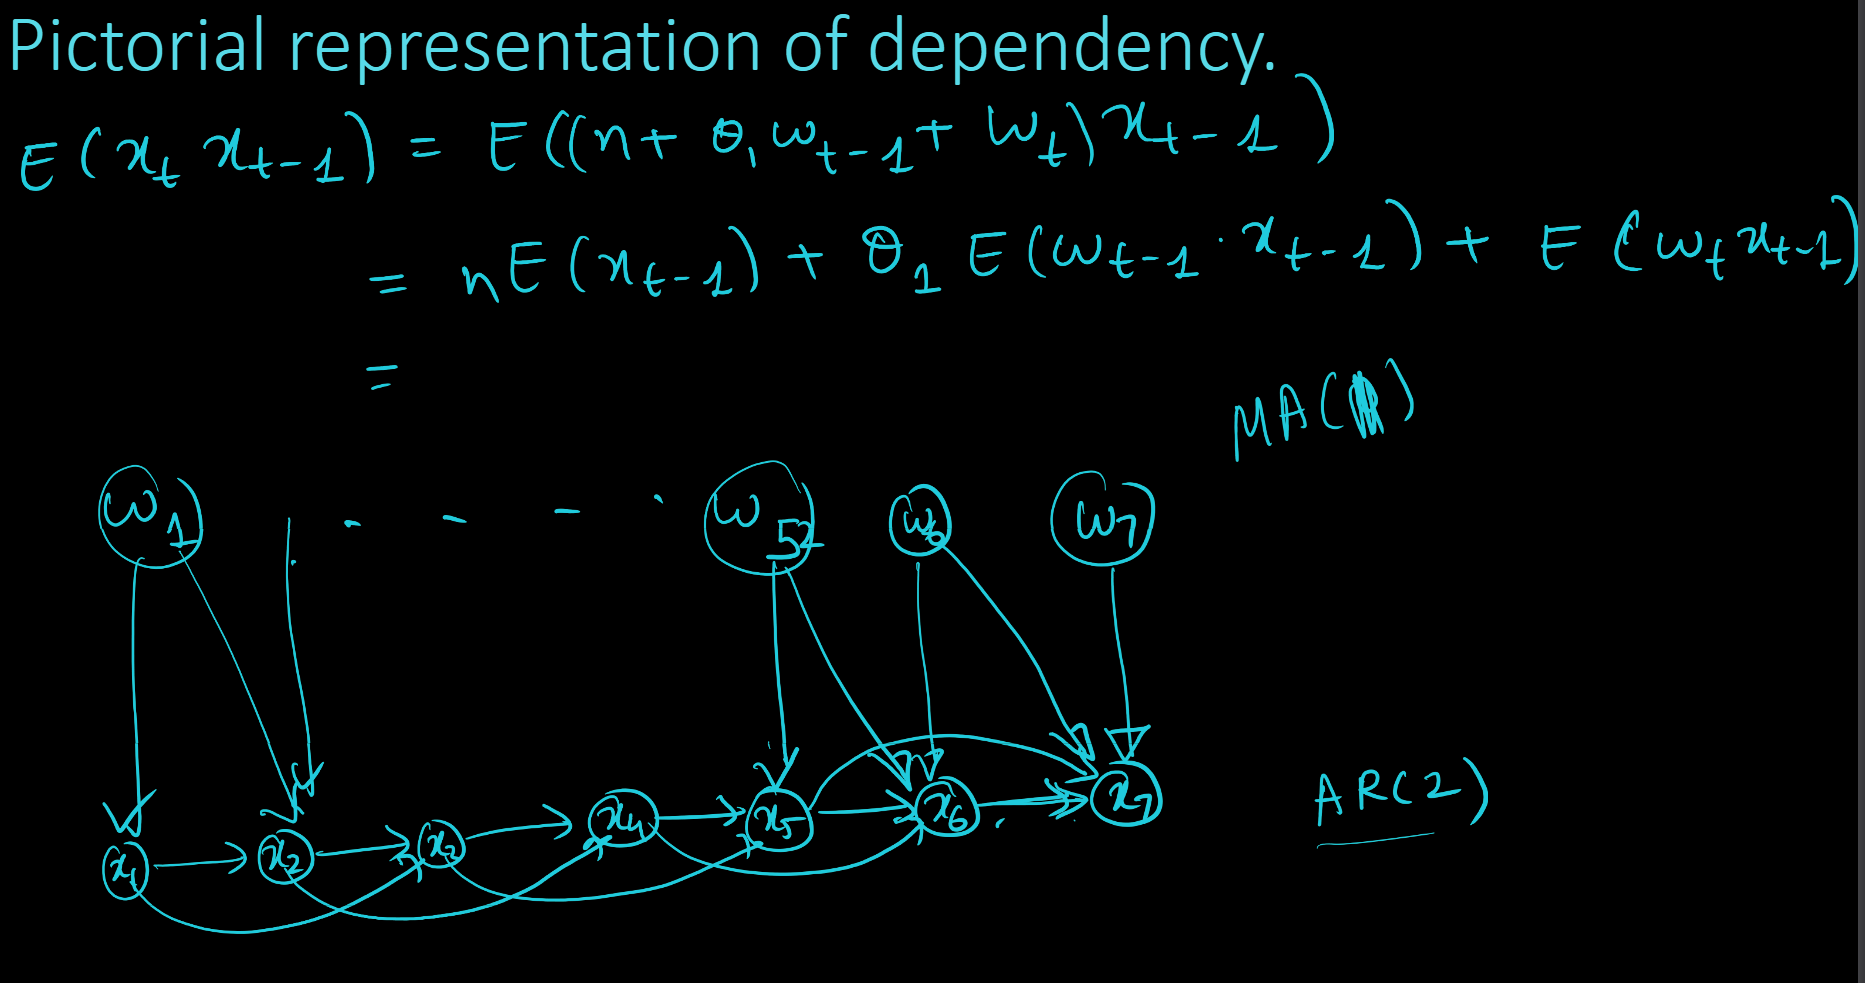 Pictorial representation of dependency.
E(x_t x_{t-1}) = E((n + θ_1 w_{t-1} + w_t) x_{t-1})
= n E(x_{t-1}) + θ_1 E(w_{t-1} · x_{t-1}) + E(w_t x_{t-1})
=
MA( )
w_1 - - - · w_5 w_6 w_7
x_1 x_2 x_3 x_4 x_5 x_6 x_7
AR(2)